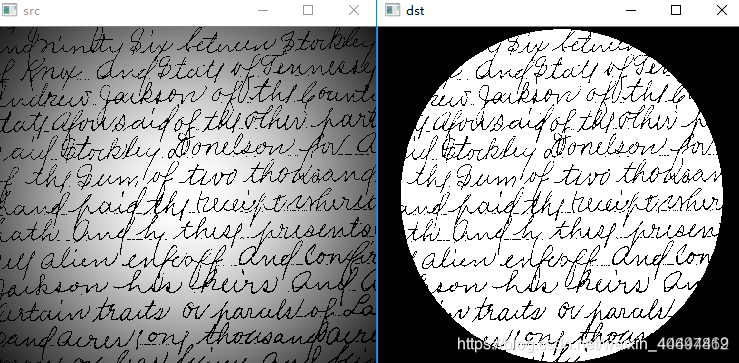 src
dst
ind Ninety Six between Stockley
of Knox and State of Tennessey
Andrew Jackson of the Count
tate aforesaid of the other part
aid Stockley Donelson for A
f the Sum of two thousand
hand paid the receipt where
ath And by these presents
ell alien enfeoff And Confir
Jackson his heirs And A
ertain traits or parcels of La
and acres long thousand acre
y Six between Stockley
and State of Ten
rew Jackson of the C
aforesaid of the other p
Stockley Donelson for
the Sum of two thousan
and paid the receipt whire
th And by these presen
alien enfeoff And Con
son his heirs An
n traits or parcels
res long thousand